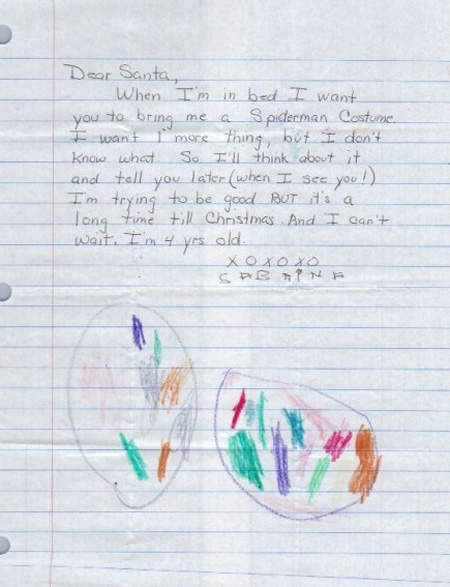 Dear Santa,
When I'm in bed I want
you to bring me a Spiderman Costume.
I want 1 more thing, but I don't
know what. So I'll think about it
and tell you later (when I see you!)
I'm trying to be good BUT it's a
long time till Christmas. And I can't
wait. I'm 4 yrs old.
X O X O X O
S A B R I N A